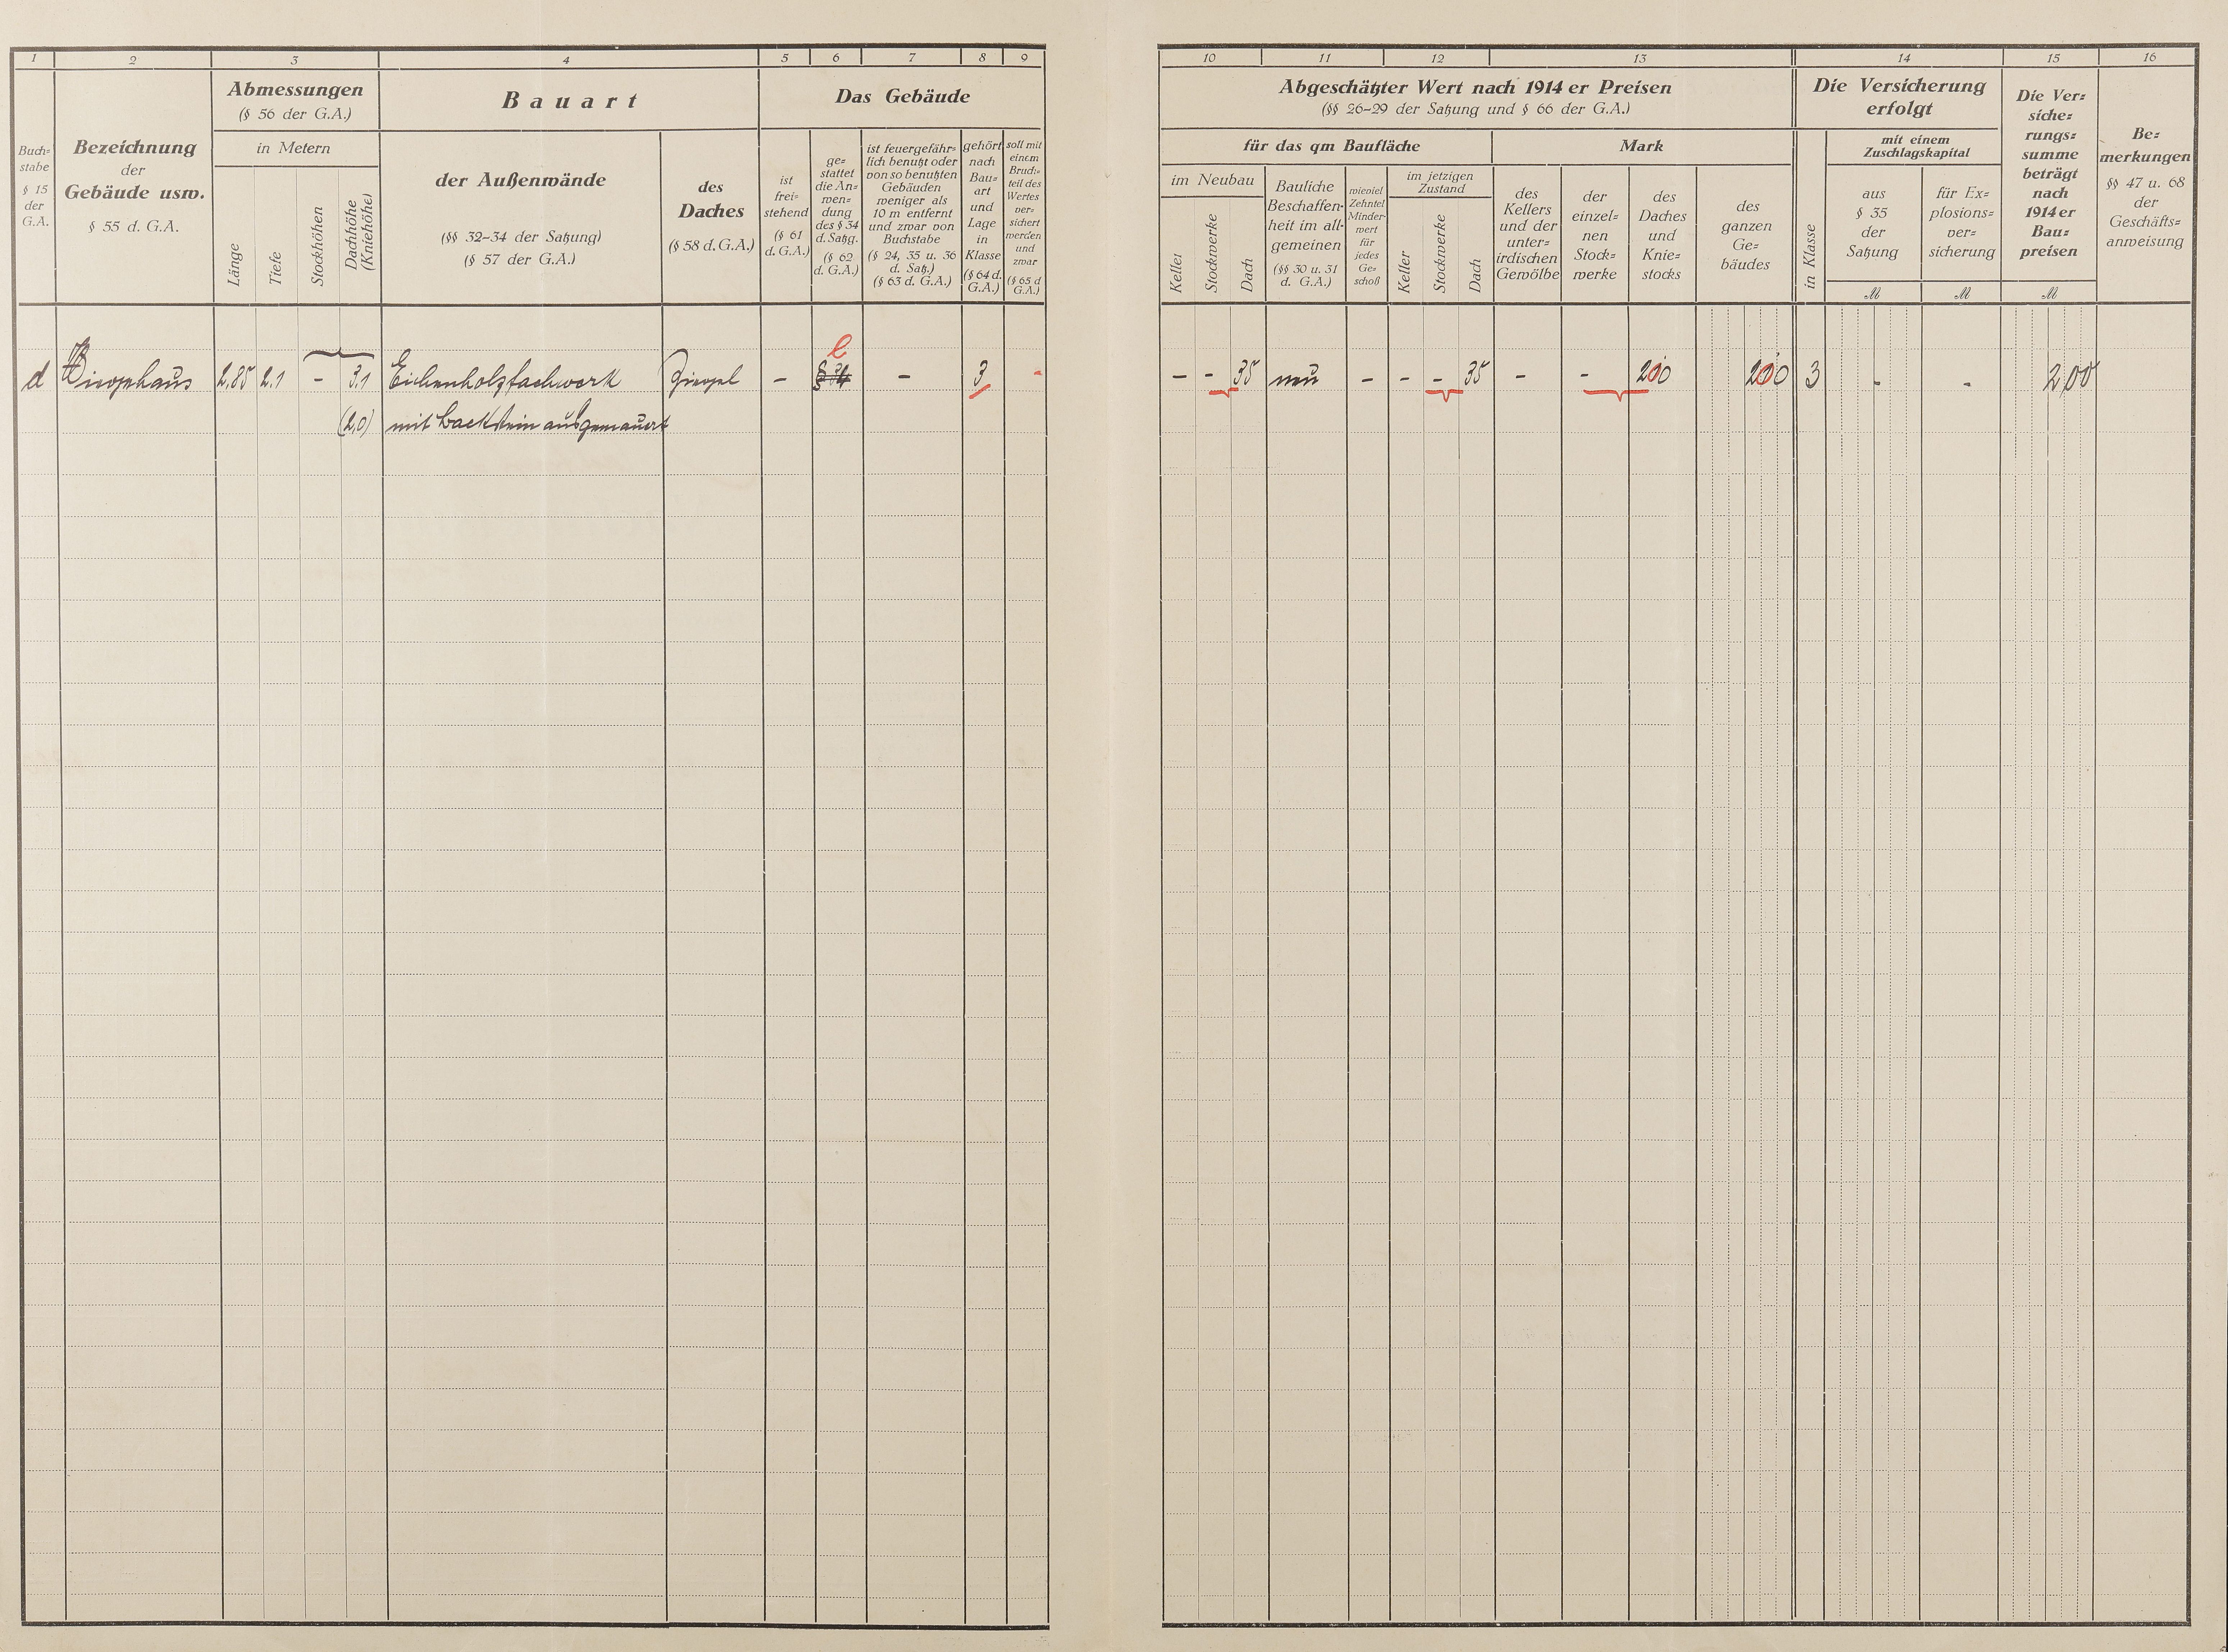 1 2 3 4 5 6 7 8 9
Buch-
stabe
§ 15
der
G.A.
Bezeichnung
der
Gebäude usw.
§ 55 d. G.A.
Abmessungen
(§ 56 der G.A.)
in Metern
Länge
Tiefe
Stockhöhen
Dachhöhe
(Kniehöhe)
Bauart
der Außenwände
(§§ 32-34 der Satzung)
(§ 57 der G.A.)
des
Daches
(§ 58 d. G.A.)
Das Gebäude
ist
frei-
stehend
(§ 61
d. G.A.)
ge-
stattet
die An-
wen-
dung
des § 34
d. Satzg.
(§ 62
d. G.A.)
ist feuergefähr-
lich benutzt oder
von so benutzten
Gebäuden
weniger als
10 m entfernt
und zwar von
Buchstabe
(§ 24, 35 u. 36
d. Satz.)
(§ 63 d. G.A.)
gehört
nach
Bau-
art
und
Lage
in
Klasse
(§ 64 d.
G.A.)
soll mit
einem
Bruch-
teil des
Wertes
ver-
sichert
werden
und
zwar
(§ 65 d
G.A.)
e
d 2,85 2,1 - 3,1 Eichenholzfachwerk Ziegel - § 34 - 3 -
(2,0) mit Backstein ausgemauert
10 11 12 13 14 15 16
Abgeschätzter Wert nach 1914er Preisen
(§§ 26-29 der Satzung und § 66 der G.A.)
für das qm Baufläche
im Neubau
Keller
Stockwerke
Dach
Bauliche
Beschaffen-
heit im all-
gemeinen
(§§ 30 u. 31
d. G.A.)
wieviel
Zehntel
Minder-
wert
für
jedes
Ge-
schoß
im jetzigen
Zustand
Keller
Stockwerke
Dach
Mark
des
Kellers
und der
unter-
irdischen
Gewölbe
der
einzel-
nen
Stock-
werke
des
Daches
und
Knie-
stocks
des
ganzen
Ge-
bäudes
Die Versicherung
erfolgt
in Klasse
mit einem
Zuschlagskapital
aus
§ 35
der
Satzung
ℳ
für Ex-
plosions-
ver-
sicherung
ℳ
Die Ver-
siche-
rungs-
summe
beträgt
nach
1914er
Bau-
preisen
ℳ
Be-
merkungen
§§ 47 u. 68
der
Geschäfts-
anweisung
- - 35 neu - - - 35 - - 200 200 3 - - 200